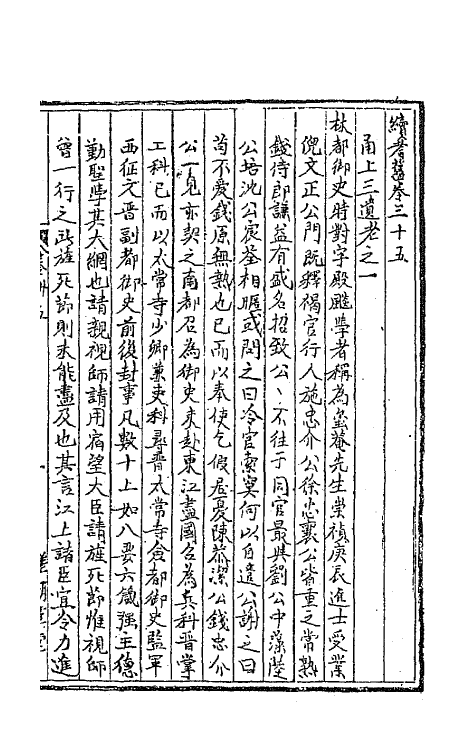 續耆舊卷三十五
甬上三遺老之一
林都御史時對字殿颺學者稱為蠒菴先生崇禎庚辰進士受業
倪文正公門既釋褐官行人施忠介公徐忠襄公皆重之常熟
錢侍郎謙益有盛名招致公丶不往于同官最與劉公中藻陸
公培沈公宸荃相暱或問之曰冷官索寞何以自遣公謝之曰
苟不愛錢原無熱也已而以奉使乞假居憂陳恭潔公錢忠介
公一見亦契之南都召為御史未赴東江盡國召為兵科晉掌
工科已而以太常寺少卿兼吏科尋晉太常寺僉都御史監軍
西征又晉副都御史前後封事凡數十上如八要六箴強主德
勤聖學其大綱也請親視師請用宿望大臣請旌死節惟視師
曾一行之旌死節則未能盡及也其言江上諸臣宜令力進
卷卅五
一